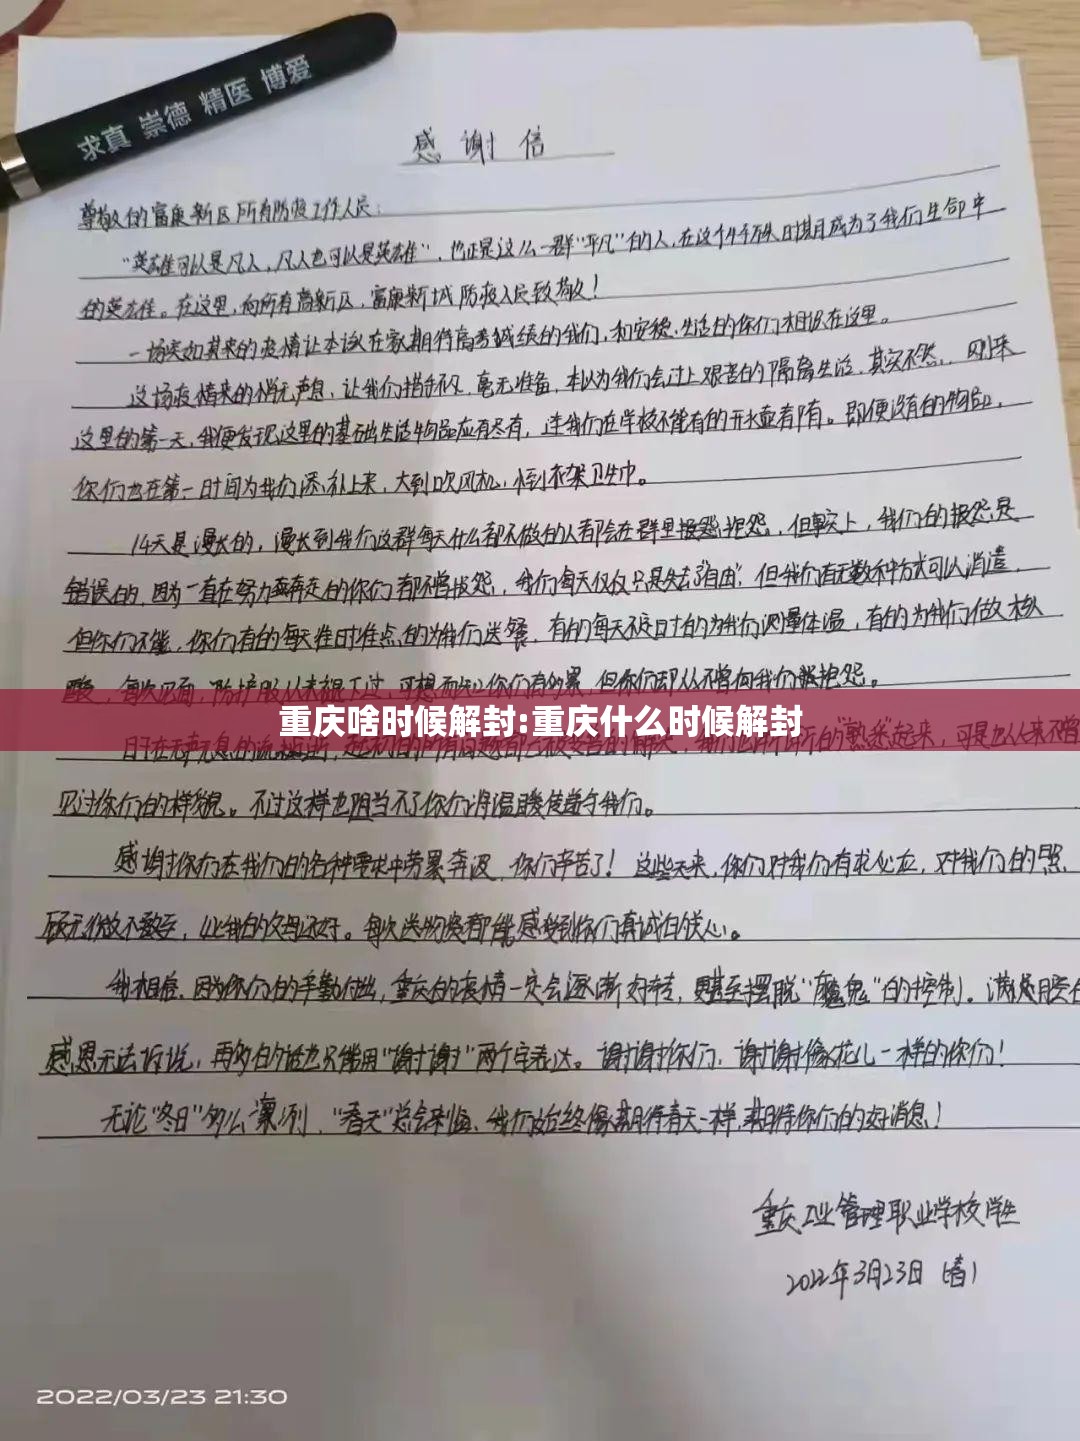 求真 崇德 精医 博爱
感谢信
尊敬的富康新区所有防疫工作人员:
“英雄可以是凡人,凡人也可以是英雄”,也正是这么一群“平凡”的人,在这个特殊时期成为了我们生命中
的英雄。在这里,向所有高新区,富康新城防疫人员致敬!
一场突如其来的疫情让本该在家期待高考成绩的我们,和安稳生活的你们相识在这里。
这场疫情来的悄无声息,让我们措手不及,毫无准备,本以为我们会过上艰苦的隔离生活,其实不然,刚来
这里的第一天,我便发现这里的基础生活物品应有尽有,连我们在学校不能有的开水壶都有。即便没有的物品,
你们也在第一时间为我们添补上来,大到吹风机,小到衣架卫生巾。
14天是漫长的,漫长到我们这群每天什么都不做的人都会在群里抱怨,但事实上,我们的抱怨是
错误的,因为一直在努力奔走的你们都不曾抱怨,我们每天仅仅只是失去了“自由”,但我们有无数种方式可以消遣,
但你们不能,你们有的每天准时准点的为我们送餐,有的每天不定时的为我们测量体温,有的为我们做核
酸,每次见面,防护服从未褪下过,可想而知你们有多累,但你们却从不曾向我们抱怨。
重庆啥时候解封:重庆什么时候解封
日子在无声无息的流逝,熟悉起来,可是也从来不曾
见过你们的样貌。不过这样也阻挡不了你们用温暖传递于我们。
感谢你们在我们的各种要求中劳累奔波,你们辛苦了!这些天来,你们对我们有求必应,对我们的照
顾无微不至,比我的父母还好。每次送物资都能感受到你们真诚的关心。
我相信,因为你们的辛勤付出,重庆的疫情一定会逐渐好转,甚至摆脱“魔鬼”的控制。满腹
感恩无法诉说,再多的话也只能用“谢谢”两个字表达。谢谢你们,谢谢像花儿一样的你们!
无论“冬日”多么凛冽,“春天”总会来临,我们始终像期待春天一样,期待你们的好消息!
重庆工业管理职业学校学生
2022年3月23日(春)
2022/03/23 21:30